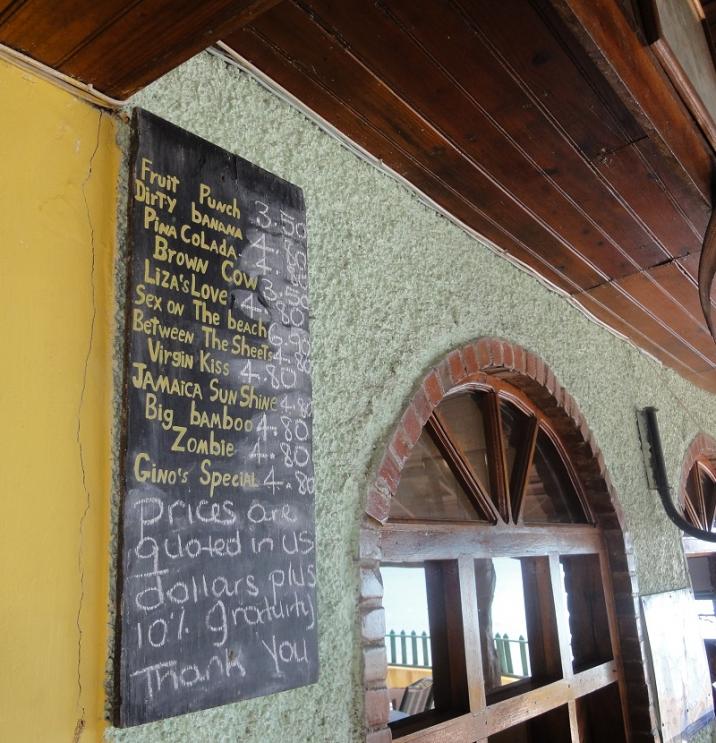 Fruit Punch 3.50
Dirty banana 4.80
Pina Colada 4.80
Brown Cow 3.50
Liza's Love 4.80
Sex on The beach 6.90
Between The Sheets 4.80
Virgin Kiss 4.80
Jamaica Sun Shine 4.80
Big bamboo 4.80
Zombie 4.80
Gino's Special 4.80
Prices are
quoted in US
dollars plus
10% gratuity
Thank You